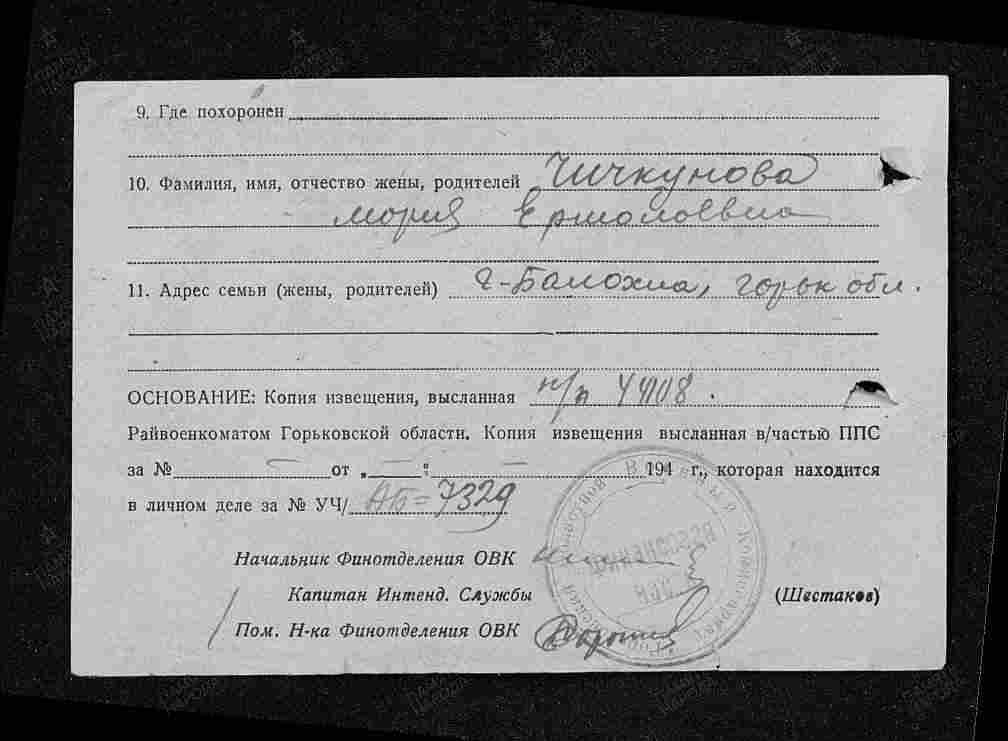 9. Где похоронен
10. Фамилия, имя, отчество жены, родителей Чичкунова
Мория Ермолоевна
11. Адрес семьи (жены, родителей) г-Балохна, горьк обл.
ОСНОВАНИЕ: Копия извещения, высланная н/п 44108.
Райвоенкоматом Горьковской области. Копия извещения высланная в/частью ППС
за № — от „ — " — 194 г., которая находится
в личном деле за № УЧ/ АБ=7329
Начальник Финотделения ОВК
Капитан Интенд. Службы (Шестаков)
Пом. Н-ка Финотделения ОВК